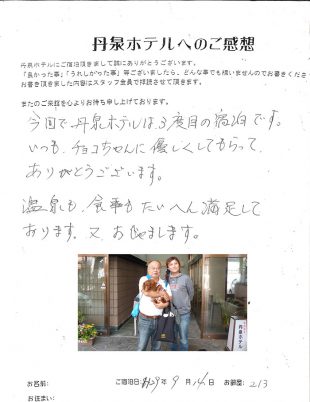 丹泉ホテルへのご感想
丹泉ホテルにご宿泊頂きまして誠にありがとうございます。
「良かった事」「うれしかった事」等ございましたら、どんな事でも構いませんのでお書きくださ
お書き頂きました内容はスタッフ全員で拝読させて頂きます。
またのご来館を心よりお待ち申し上げております。
今回で、丹泉ホテルは3度目の宿泊です。
いつも、チョコちゃんに優しくしてもらって、
ありがとうございます。
温泉も、食事もたいへん満足して
おります。又、おじゃまします。
丹泉ホテル
お名前: ご宿泊日: 9月14日 お部屋: 213
お住まい: